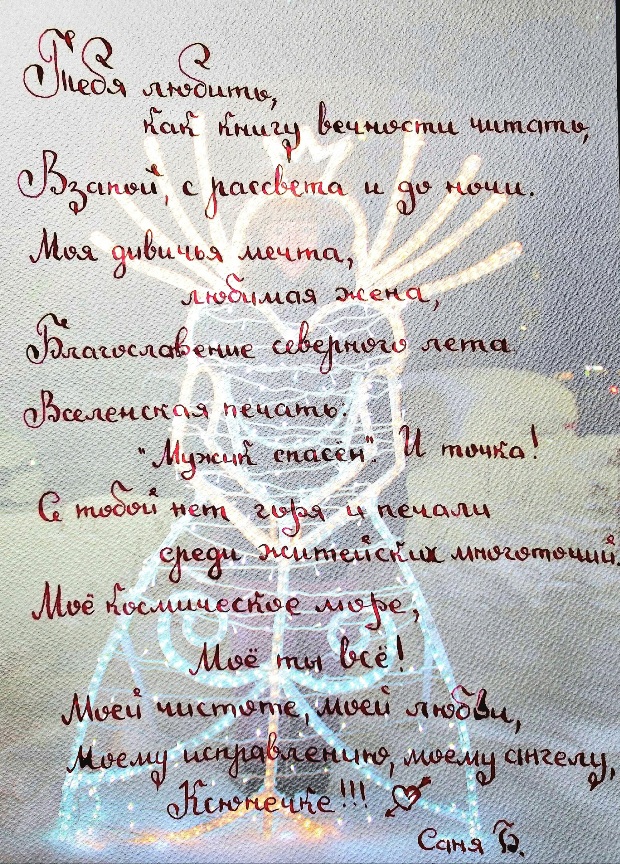 Тебя любить,
как книгу вечности читать,
Взапой, с рассвета и до ночи.
Моя дивичья мечта,
любимая жена,
Благославение северного лета
Вселенская печать:
"Мужик спасён". И точка!
С тобой нет горя и печали
среди житейских многоточий.
Моё космическое море,
Моё ты всё!
Моей чистоте, моей любви,
Моему исправлению, моему ангелу,
Ксюнечке!!!
Саня Б.